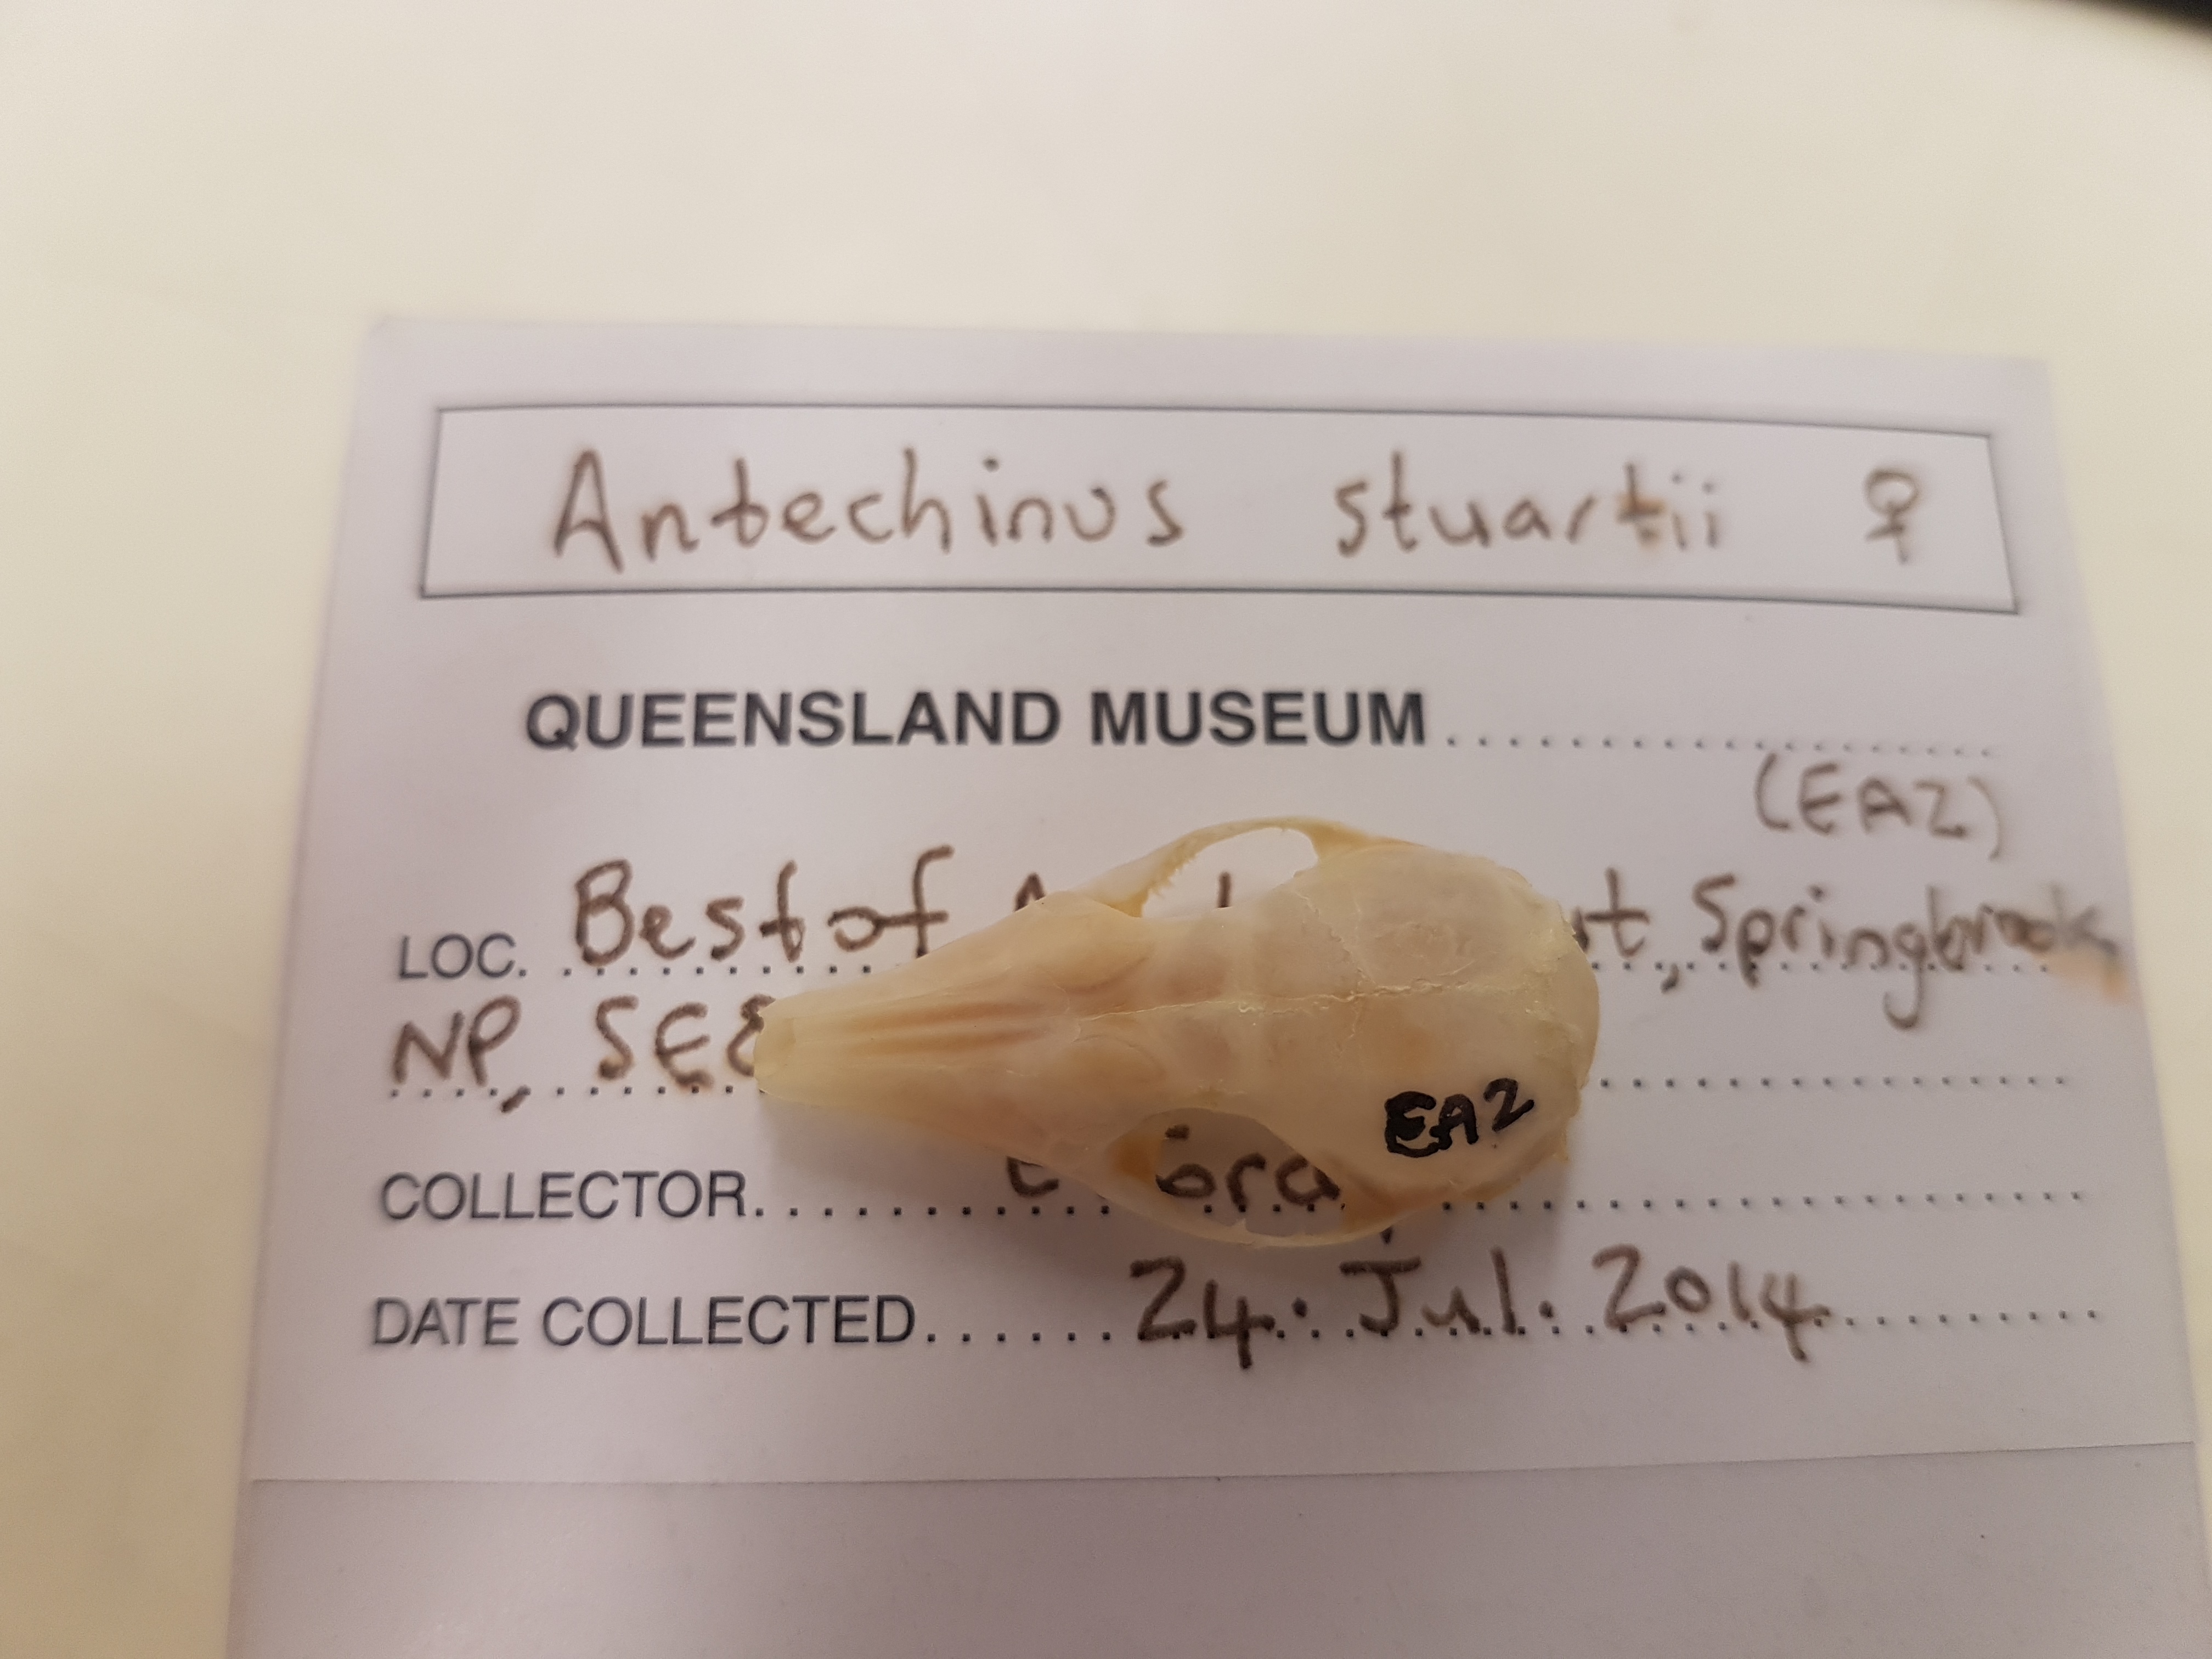 Antechinus stuartii ♀
QUEENSLAND MUSEUM
(EA2)
LOC. Best of, Springbrook
NP, SE
COLLECTOR
DATE COLLECTED 24. Jul. 2014
EA2